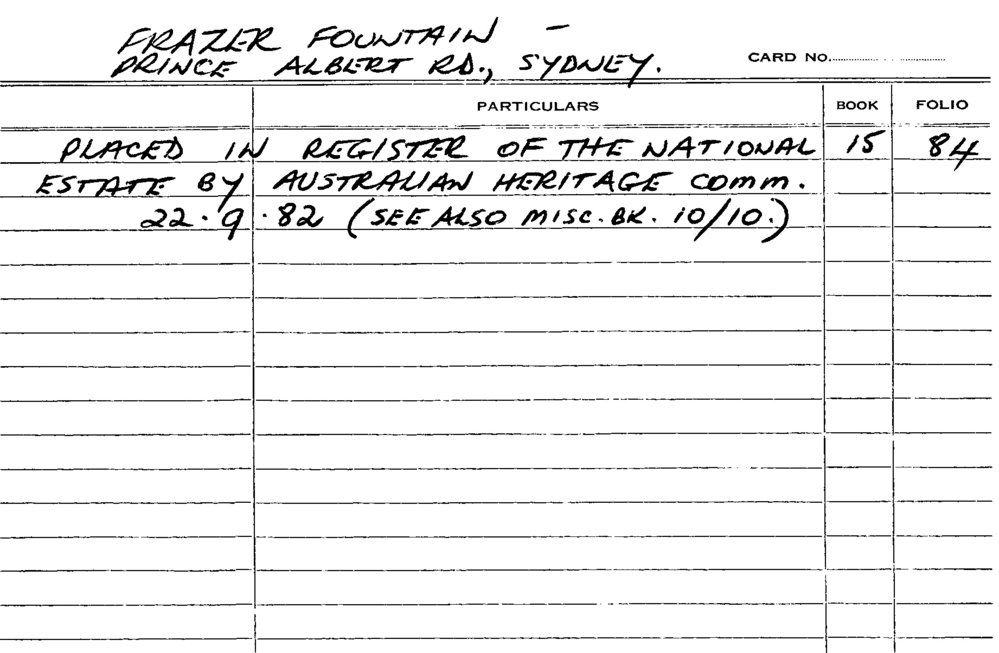 FRAZER FOUNTAIN -
PRINCE ALBERT RD., SYDNEY.
CARD NO.
PARTICULARS BOOK FOLIO
PLACED IN REGISTER OF THE NATIONAL 15 84
ESTATE BY AUSTRALIAN HERITAGE COMM.
22.9.82 (SEE ALSO MISC. BK. 10/10.)